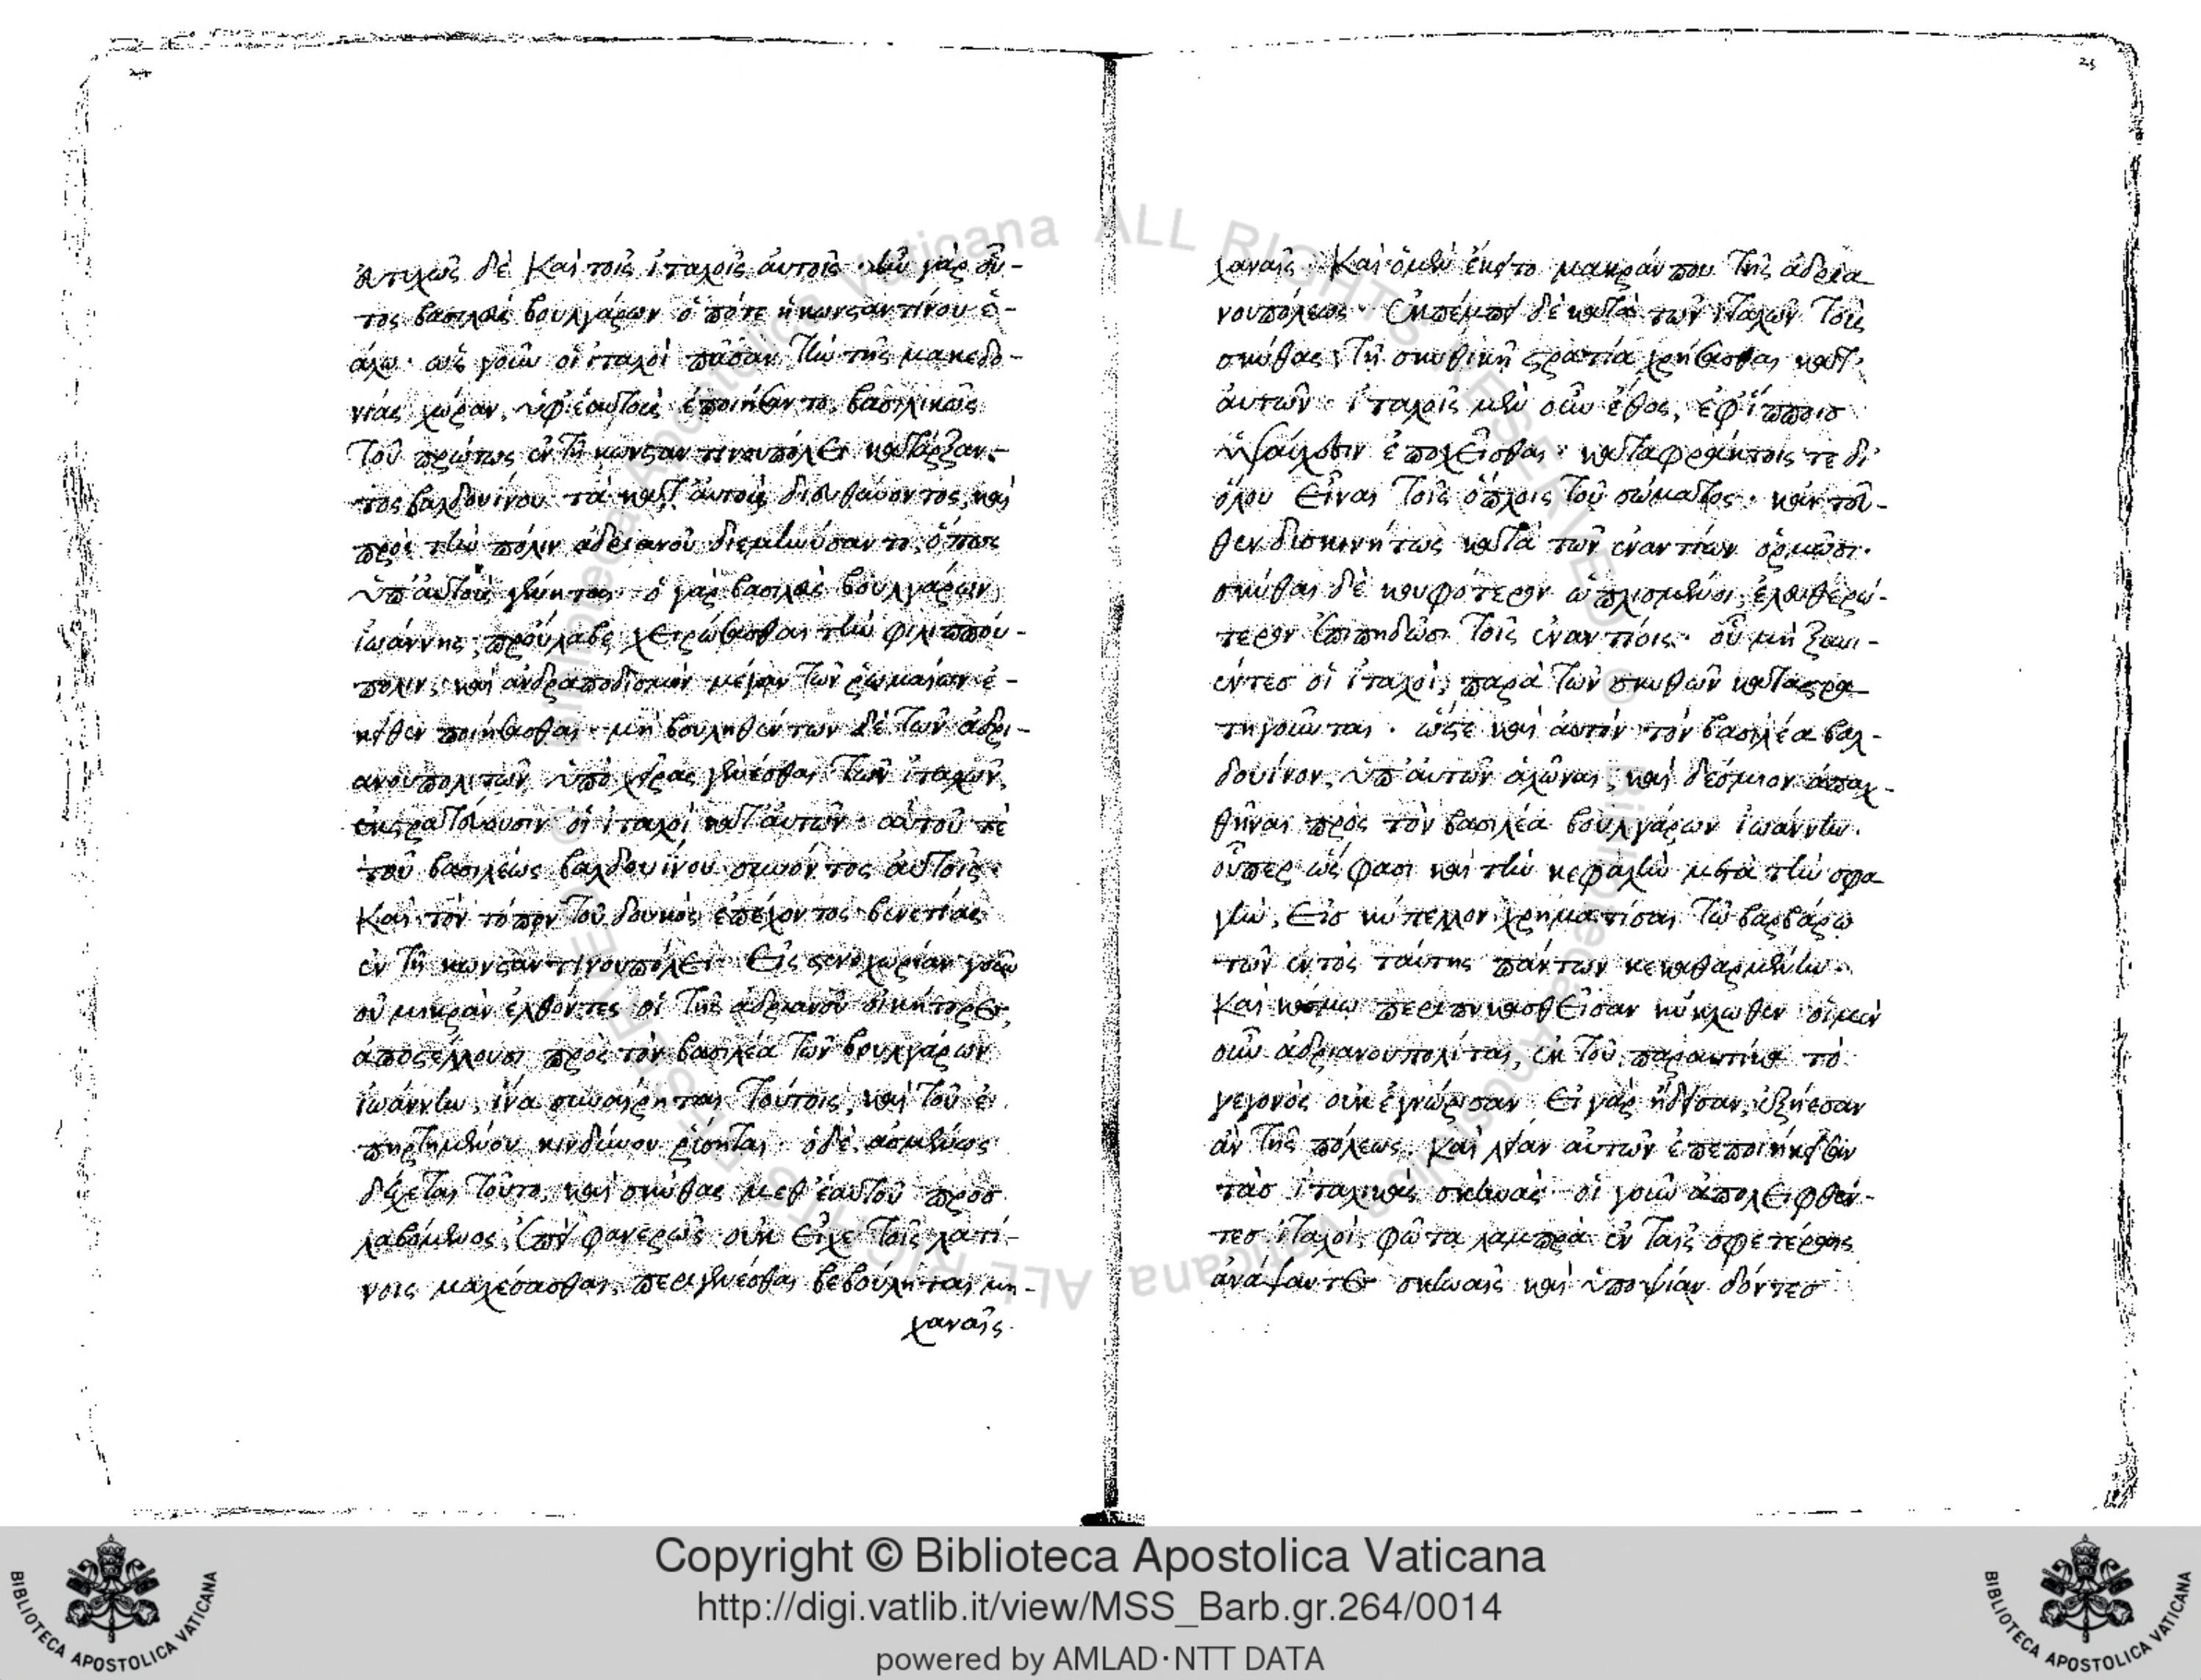 24
ἀτυχῶς δὲ καὶ τοῖς ἰταλοῖς αὐτοῖς· ἦν γὰρ οὗ-
τος βασιλεὺς βουλγάρων ὁπότε ἡ κωνσταντίνου ἑ-
άλω· ὡς γοῦν οἱ ἰταλοὶ πᾶσαν τὴν τῆς μακεδο-
νίας χώραν, ὑφ' ἑαυτοὺς ἐποιήσαντο, βασιλικῶς
τοῦ πρώτως ἐν τῇ κωνσταντινουπόλει κατάρξαν-
τος βαλδουίνου τὰ κατ' αὐτοὺς διευθύνοντος, καὶ
πρὸς τὴν πόλιν ἀδριανοῦ διεμηνύσαντο, ὅπως
ὑπ' αὐτοὺς γένηται· ὁ γὰρ βασιλεὺς βουλγάρων
ἰωάννης, προύλαβε χειρώσασθαι τὴν φιλιππού-
πολιν, καὶ ἀνδραποδισμὸν μέγαν τῶν ῥωμαίων ἐ-
κεῖθεν ποιήσασθαι· μὴ βουληθέντων δὲ τῶν ἀδρι-
ανουπολιτῶν ὑπὸ χεῖρας γενέσθαι τῶν ἰταλῶν,
ἐκστρατεύουσιν οἱ ἰταλοὶ κατ' αὐτῶν· αὐτοῦ τε
τοῦ βασιλέως βαλδουίνου συνόντος αὐτοῖς·
καὶ τὸν τόπον τοῦ δουκὸς ἐπέχοντος βενετίας
ἐν τῇ κωνσταντινουπόλει· εἰς στενοχωρίαν γοῦν
οὐ μικρὰν ἐλθόντες οἱ τῆς ἀδριανοῦ οἰκήτορες,
ἀποστέλλουσι πρὸς τὸν βασιλέα τῶν βουλγάρων
ἰωάννην, ἵνα συναίρηται τούτοις, καὶ τοῦ ἐ
πηρτημένου κινδύνου ῥύσηται· ὁ δὲ ἀσμένως
δέχεται τοῦτο, καὶ σκύθας μεθ' ἑαυτοῦ προσ
λαβόμενος, ἐπεὶ φανερῶς οὐκ εἶχε τοῖς λατί-
νοις μαχέσασθαι, περιγενέσθαι βεβούληται μη-
χαναῖς.
25
χαναῖς· καὶ ὁ μὲν ἔκειτο μακράν που τῆς ἀδρια
νουπόλεως· ἐκπέμπει δὲ κατὰ τῶν ἰταλῶν τοὺς
σκύθας, τῇ σκυθικῇ στρατιᾷ χρήσασθαι κατ'
αὐτῶν· ἰταλοῖς μὲν οὖν ἔθος, ἐφ' ἵπποισ
ὑψαύχεσιν ἐποχεῖσθαι· καταφράκτοις τε δι'
ὅλου εἶναι τοῖς ὅπλοις τοῦ σώματος· κἀντεῦ-
θεν δυσκινήτως κατὰ τῶν ἐναντίων ὁρμῶσι·
σκύθαι δὲ κουφότερον ὡπλισμένοι, ἐλευθερώ-
τερον ἐπιπηδῶσι τοῖς ἐναντίοις· οὗ μὴ ξυνι-
έντεσ οἱ ἰταλοὶ, παρὰ τῶν σκυθῶν καταστρα
τηγοῦνται· ὥστε καὶ αὐτὸν τὸν βασιλέα βαλ-
δουίνον, ὑπ' αὐτῶν ἁλῶναι, καὶ δέσμιον ἀπαχ-
θῆναι πρὸς τὸν βασιλέα βουλγάρων ἰωάννην.
οὗπερ ὥς φασι καὶ τὴν κεφαλὴν μετὰ τὴν σφα
γὴν, εἰσ κύπελλον χρηματίσαι τῷ βαρβάρῳ
τῶν ἐντὸς ταύτης πάντων κεκαθαρμένην·
καὶ κόσμῳ περιπυκασθεῖσαν κύκλωθεν· οἱ μὲν
οὖν ἀδριανουπολῖται, ἐκ τοῦ παραυτίκα τὸ
γεγονὸς οὐκ ἐγνώρισαν· εἰ γὰρ ᾔδεισαν, ἐξῄεσαν
ἂν τῆς πόλεως, καὶ λείαν αὐτῶν ἐπεποιήκεσαν
τὰσ ἰταλικὰς σκηνάς· οἱ γοῦν ἀπολειφθέν-
τεσ ἰταλοὶ, φῶτα λαμπρὰ ἐν ταῖς σφετέραις
ἀνάψαντες σκηναῖς καὶ ὑποψίαν δόντεσ
Copyright © Biblioteca Apostolica Vaticana
http://digi.vatlib.it/view/MSS_Barb.gr.264/0014
powered by AMLAD·NTT DATA
BIBLIOTECA APOSTOLICA VATICANA
BIBLIOTECA APOSTOLICA VATICANA